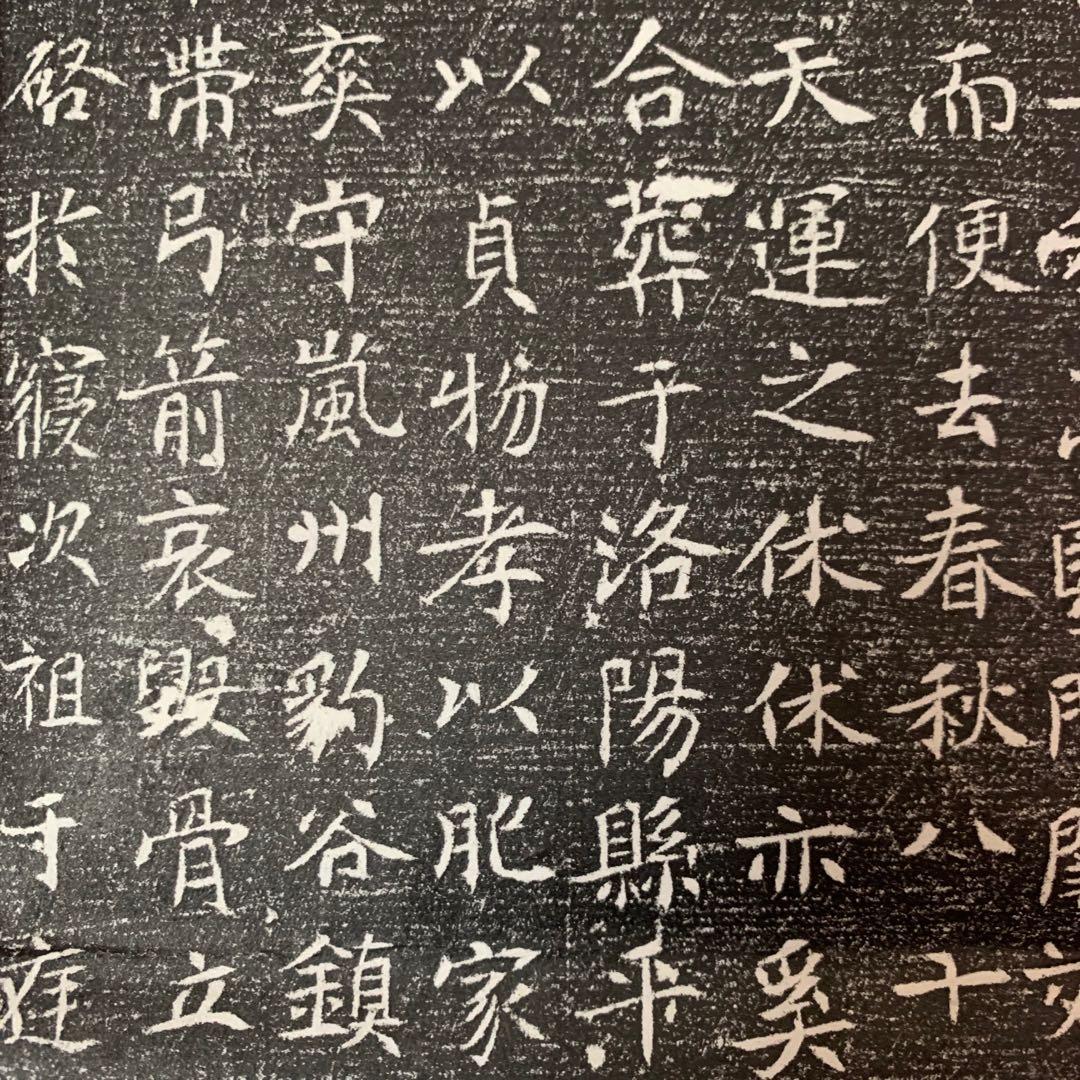 而便去春秋八十
天運之休休亦奚
合葬于洛陽縣平
以貞物孝以肥家
奕守嵐州豹谷鎮
帶弓箭哀毀骨立
啓於寢次祖于庭